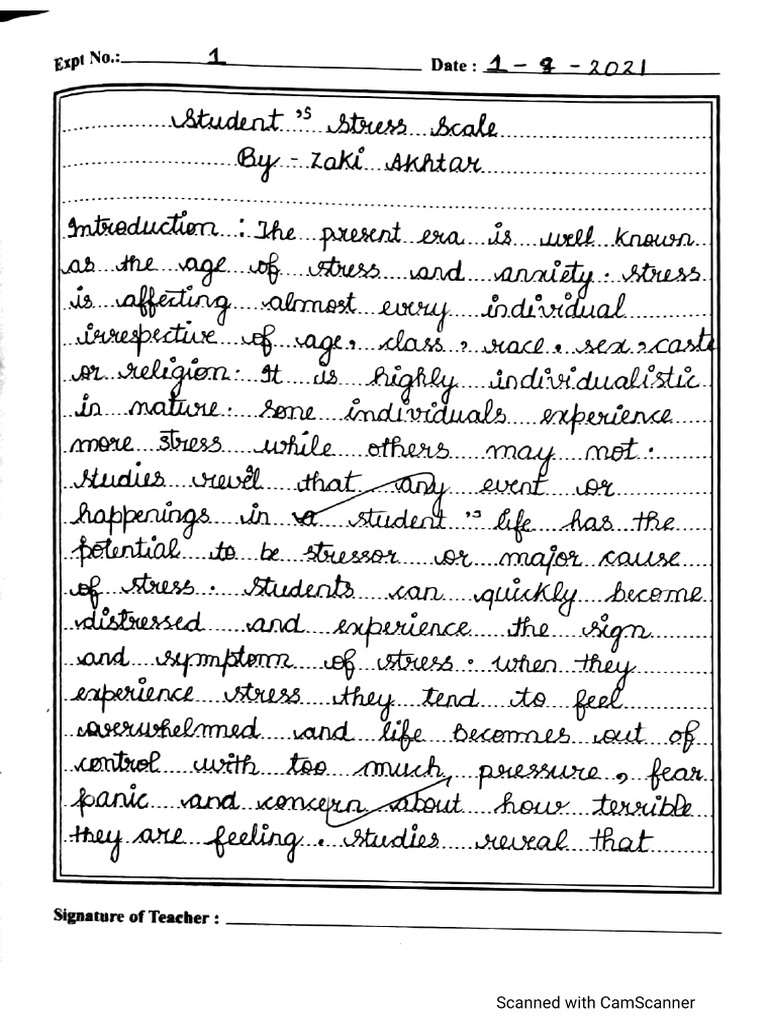 Expt No.: 1 Date : 1 - 9 - 2021
Student 's Stress Scale
By - Zaki Akhtar
Introduction : The present era is well known
as the age of stress and anxiety. stress
is affecting almost every individual
irrespective of age, class, race, sex, caste
or religion. It is highly individualistic
in nature. Some individuals experience
more stress while others may not.
studies revel that any event or
happenings in a student 's life has the
potential to be stressor or major cause
of stress. Students can quickly become
distressed and experience the sign
and symptom of stress. when they
experience stress they tend to feel
overwhelmed and life becomes out of
control with too much, pressure, fear
panic and concern about how terrible
they are feeling. studies reveal that
Signature of Teacher :
Scanned with CamScanner